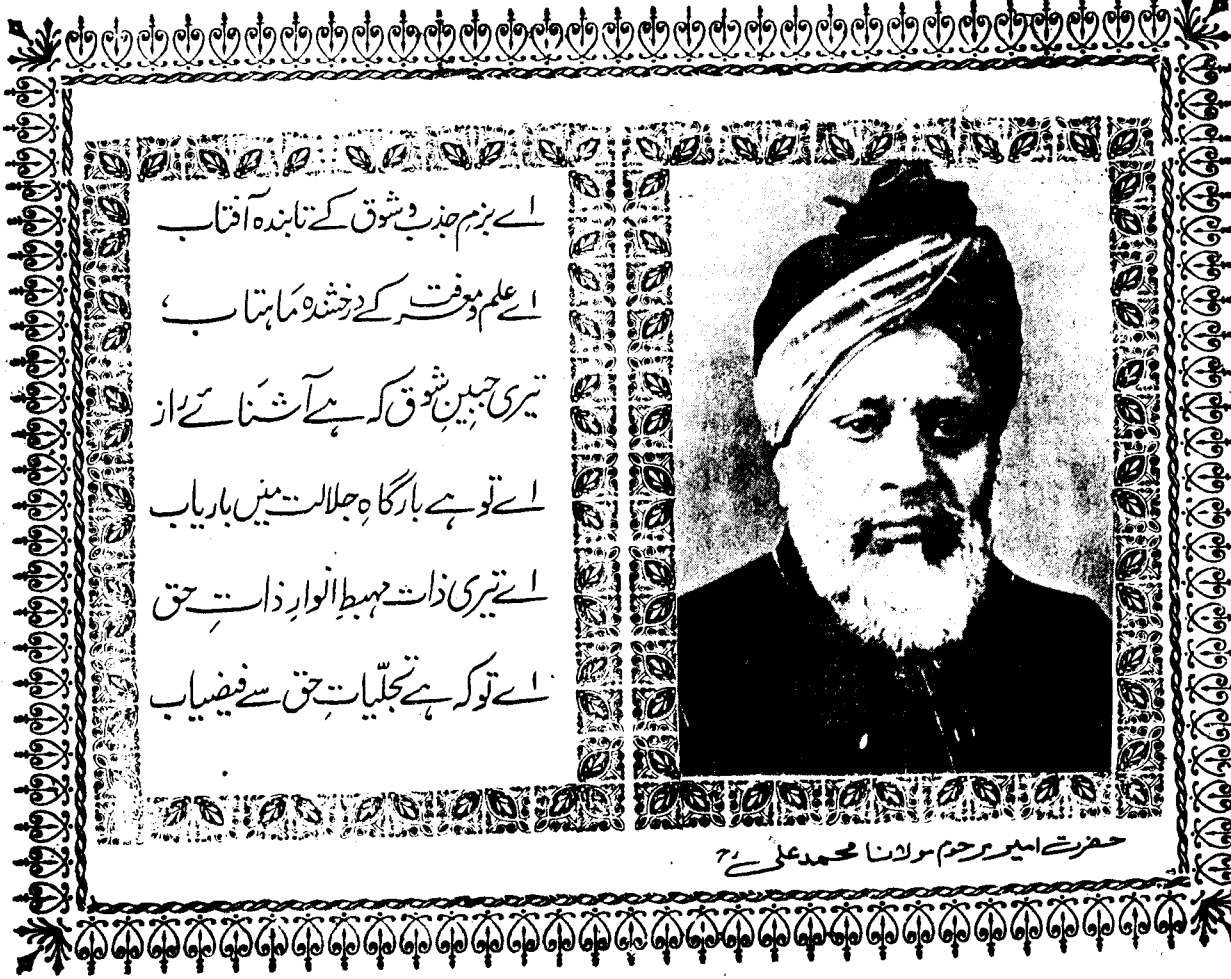 اے بزمِ جذب و شوق کے تابندہ آفتاب
اے علم و معرفت کے درخشندہ مَاہتاب،
تیری جبینِ شوق کہ ہے آشنَائے راز
اے تو ہے بارگاہِ جلالت میں باریاب
اے تیری ذات مہبطِ انوارِ ذاتِ حق
اے تو کہ ہے تجلّیاتِ حق سے فیضیاب
حضرت امیر مرحوم مولانا محمد علی رح